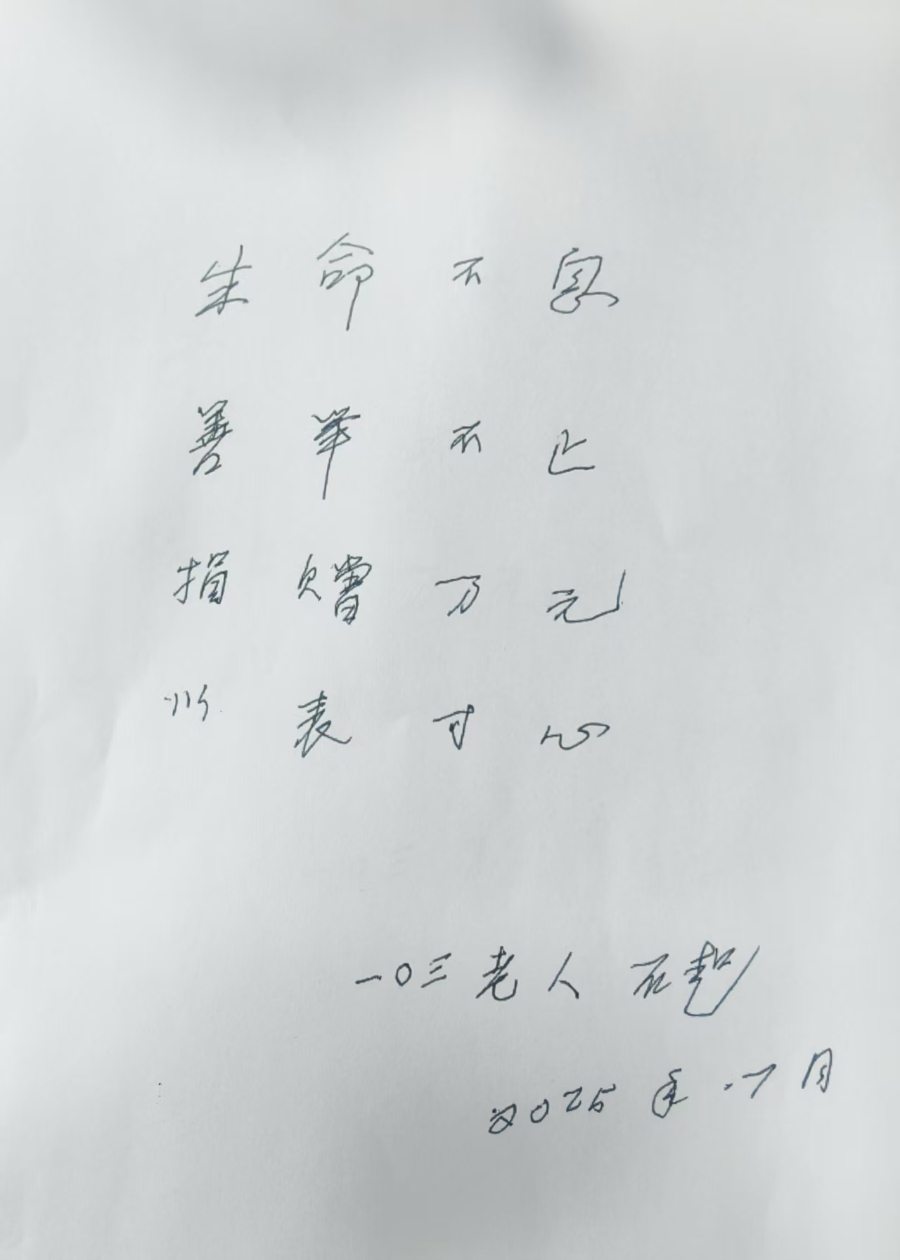 生命不息
善举不止
捐赠万元
以表寸心
一〇三老人石起
2025年.7月